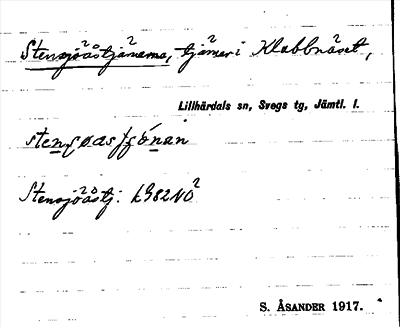 Stensjöåstjärnarna, tjärnar i Klabbnäset,
Lillhärdals sn, Svegs tg, Jämtl. l.
Stensjöåstj: L982NO²
S. ÅSANDER 1917.